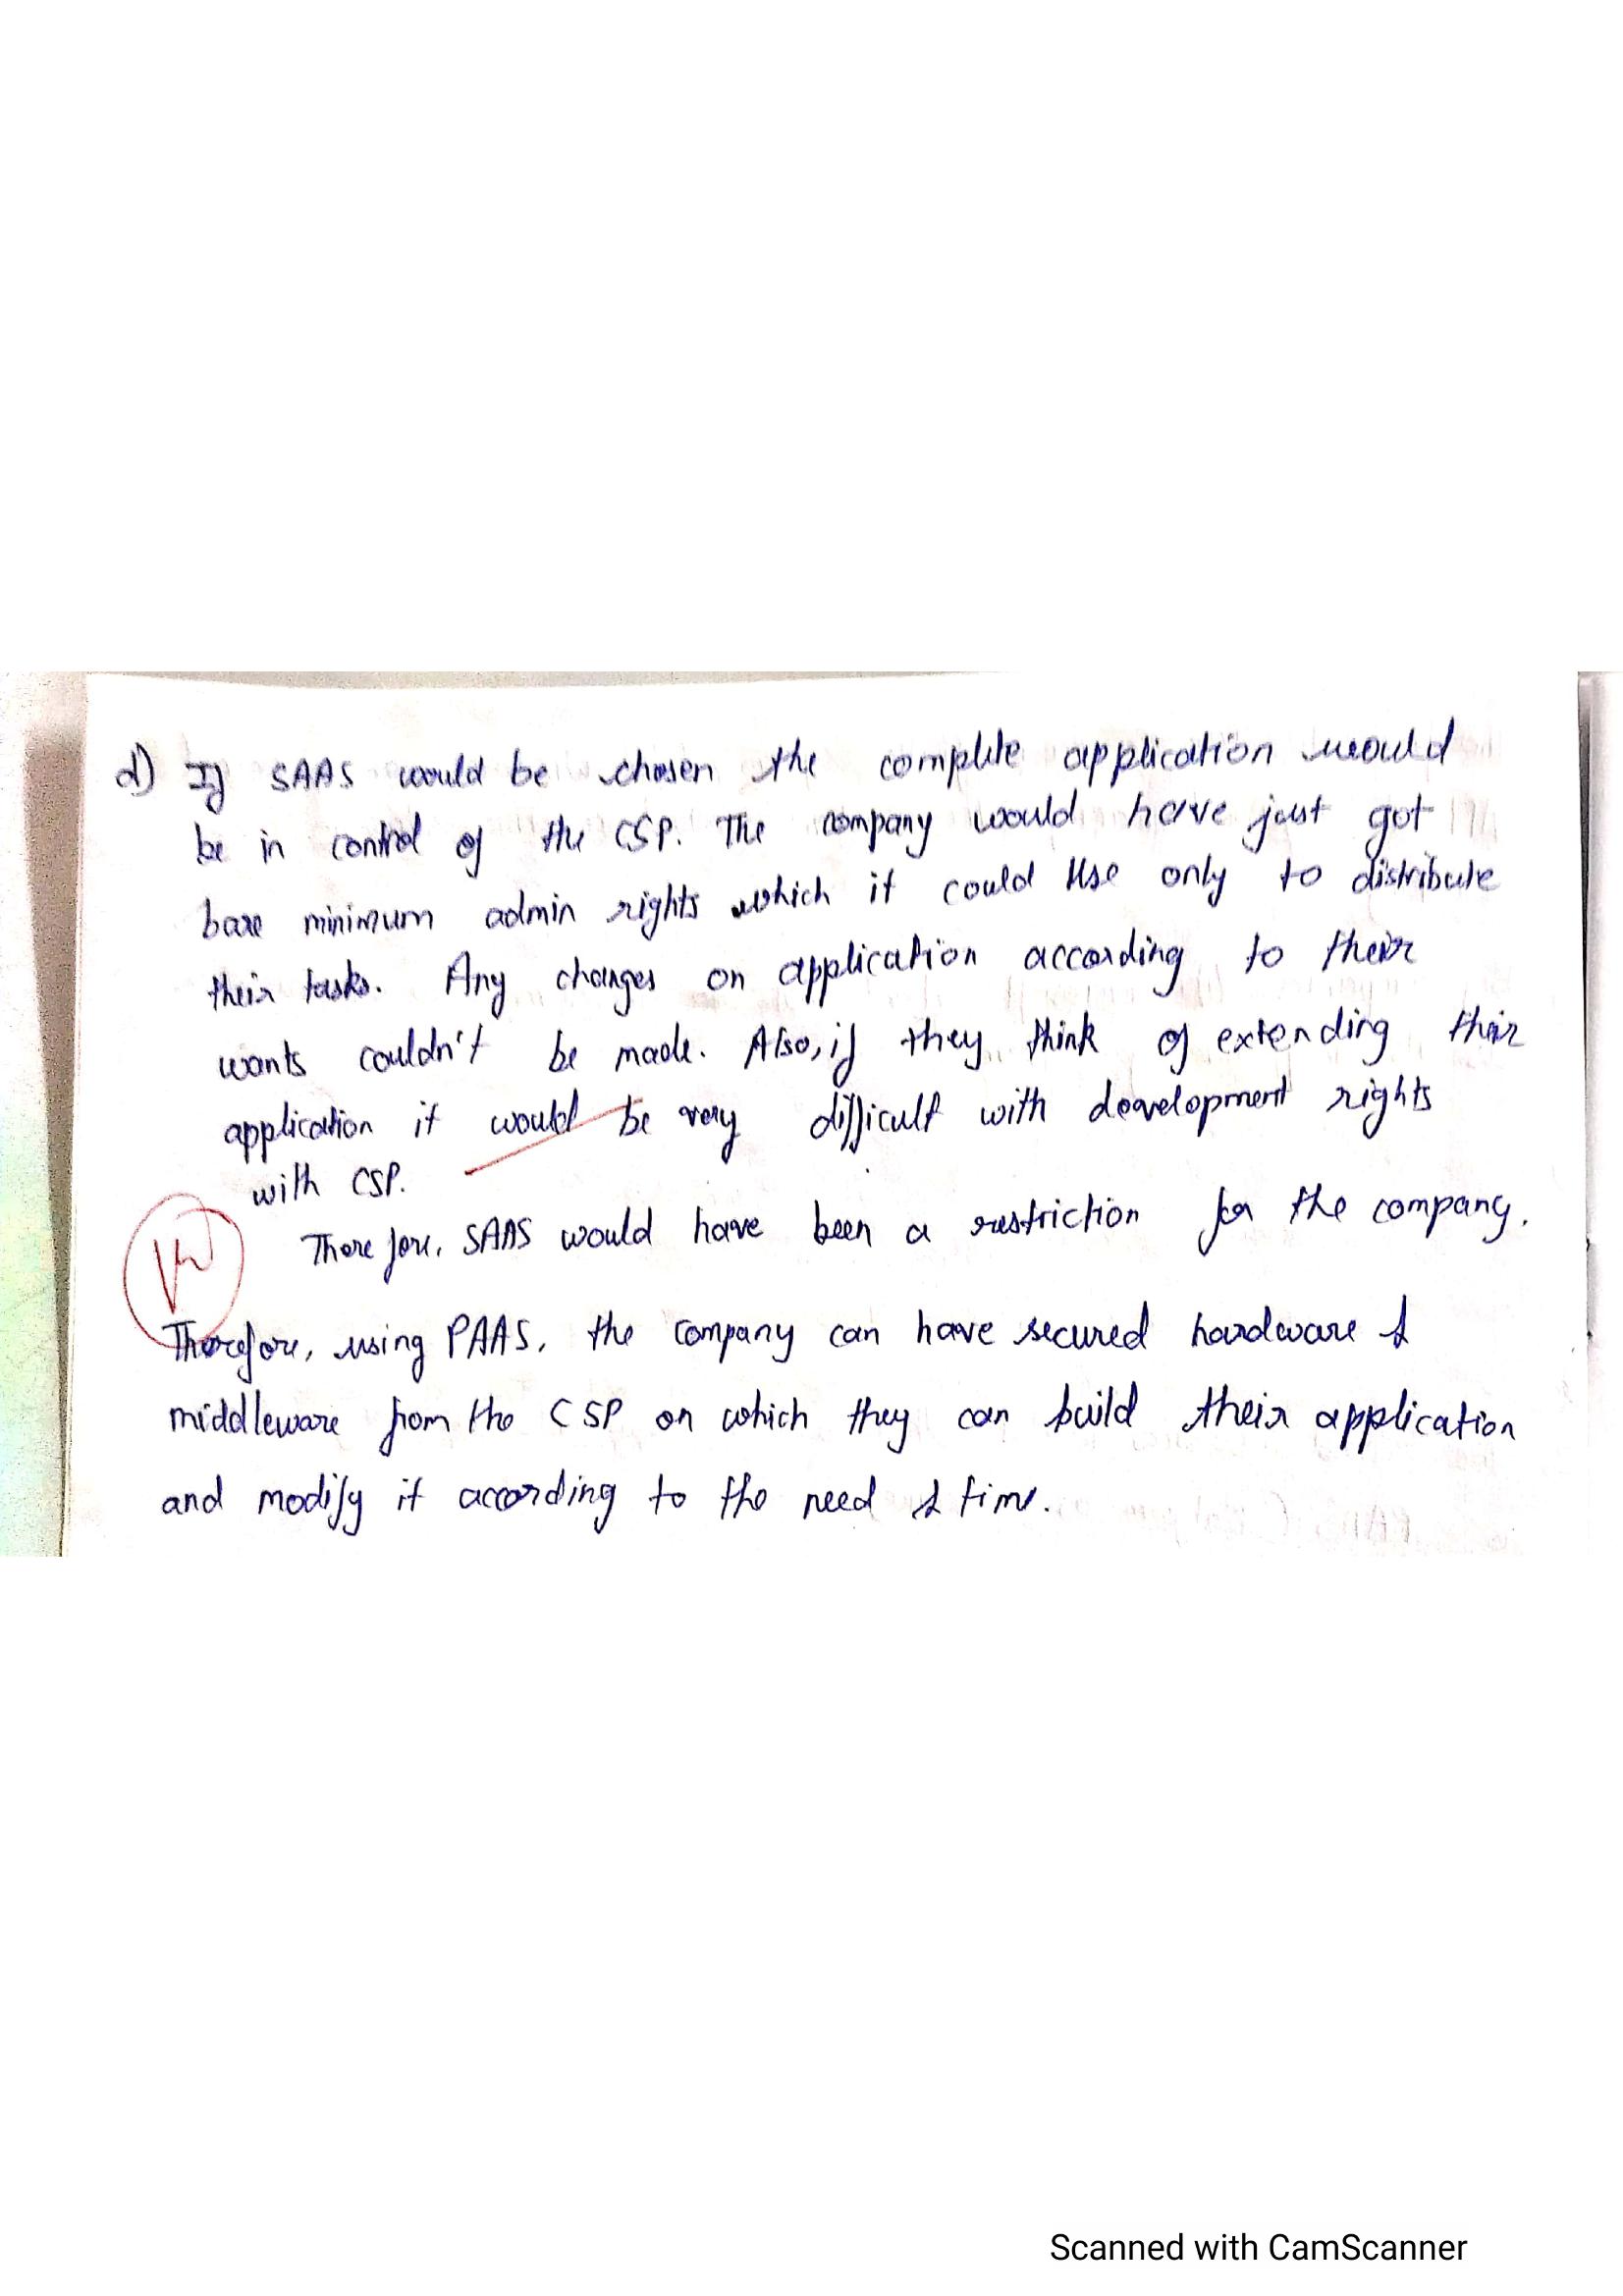 d) If SAAS would be chosen the complete application would
be in control of the CSP. The company would have just got
bare minimum admin rights which it could use only to distribute
their tasks. Any changes on application according to their
wants couldn't be made. Also, if they think of extending their
application it would be very difficult with deavelopment rights
with CSP.
Therefore, SAAS would have been a restriction for the company.
Therefore, using PAAS, the company can have secured hardware &
middleware from the CSP on which they can build their application
and modify it according to the need & time.
Scanned with CamScanner